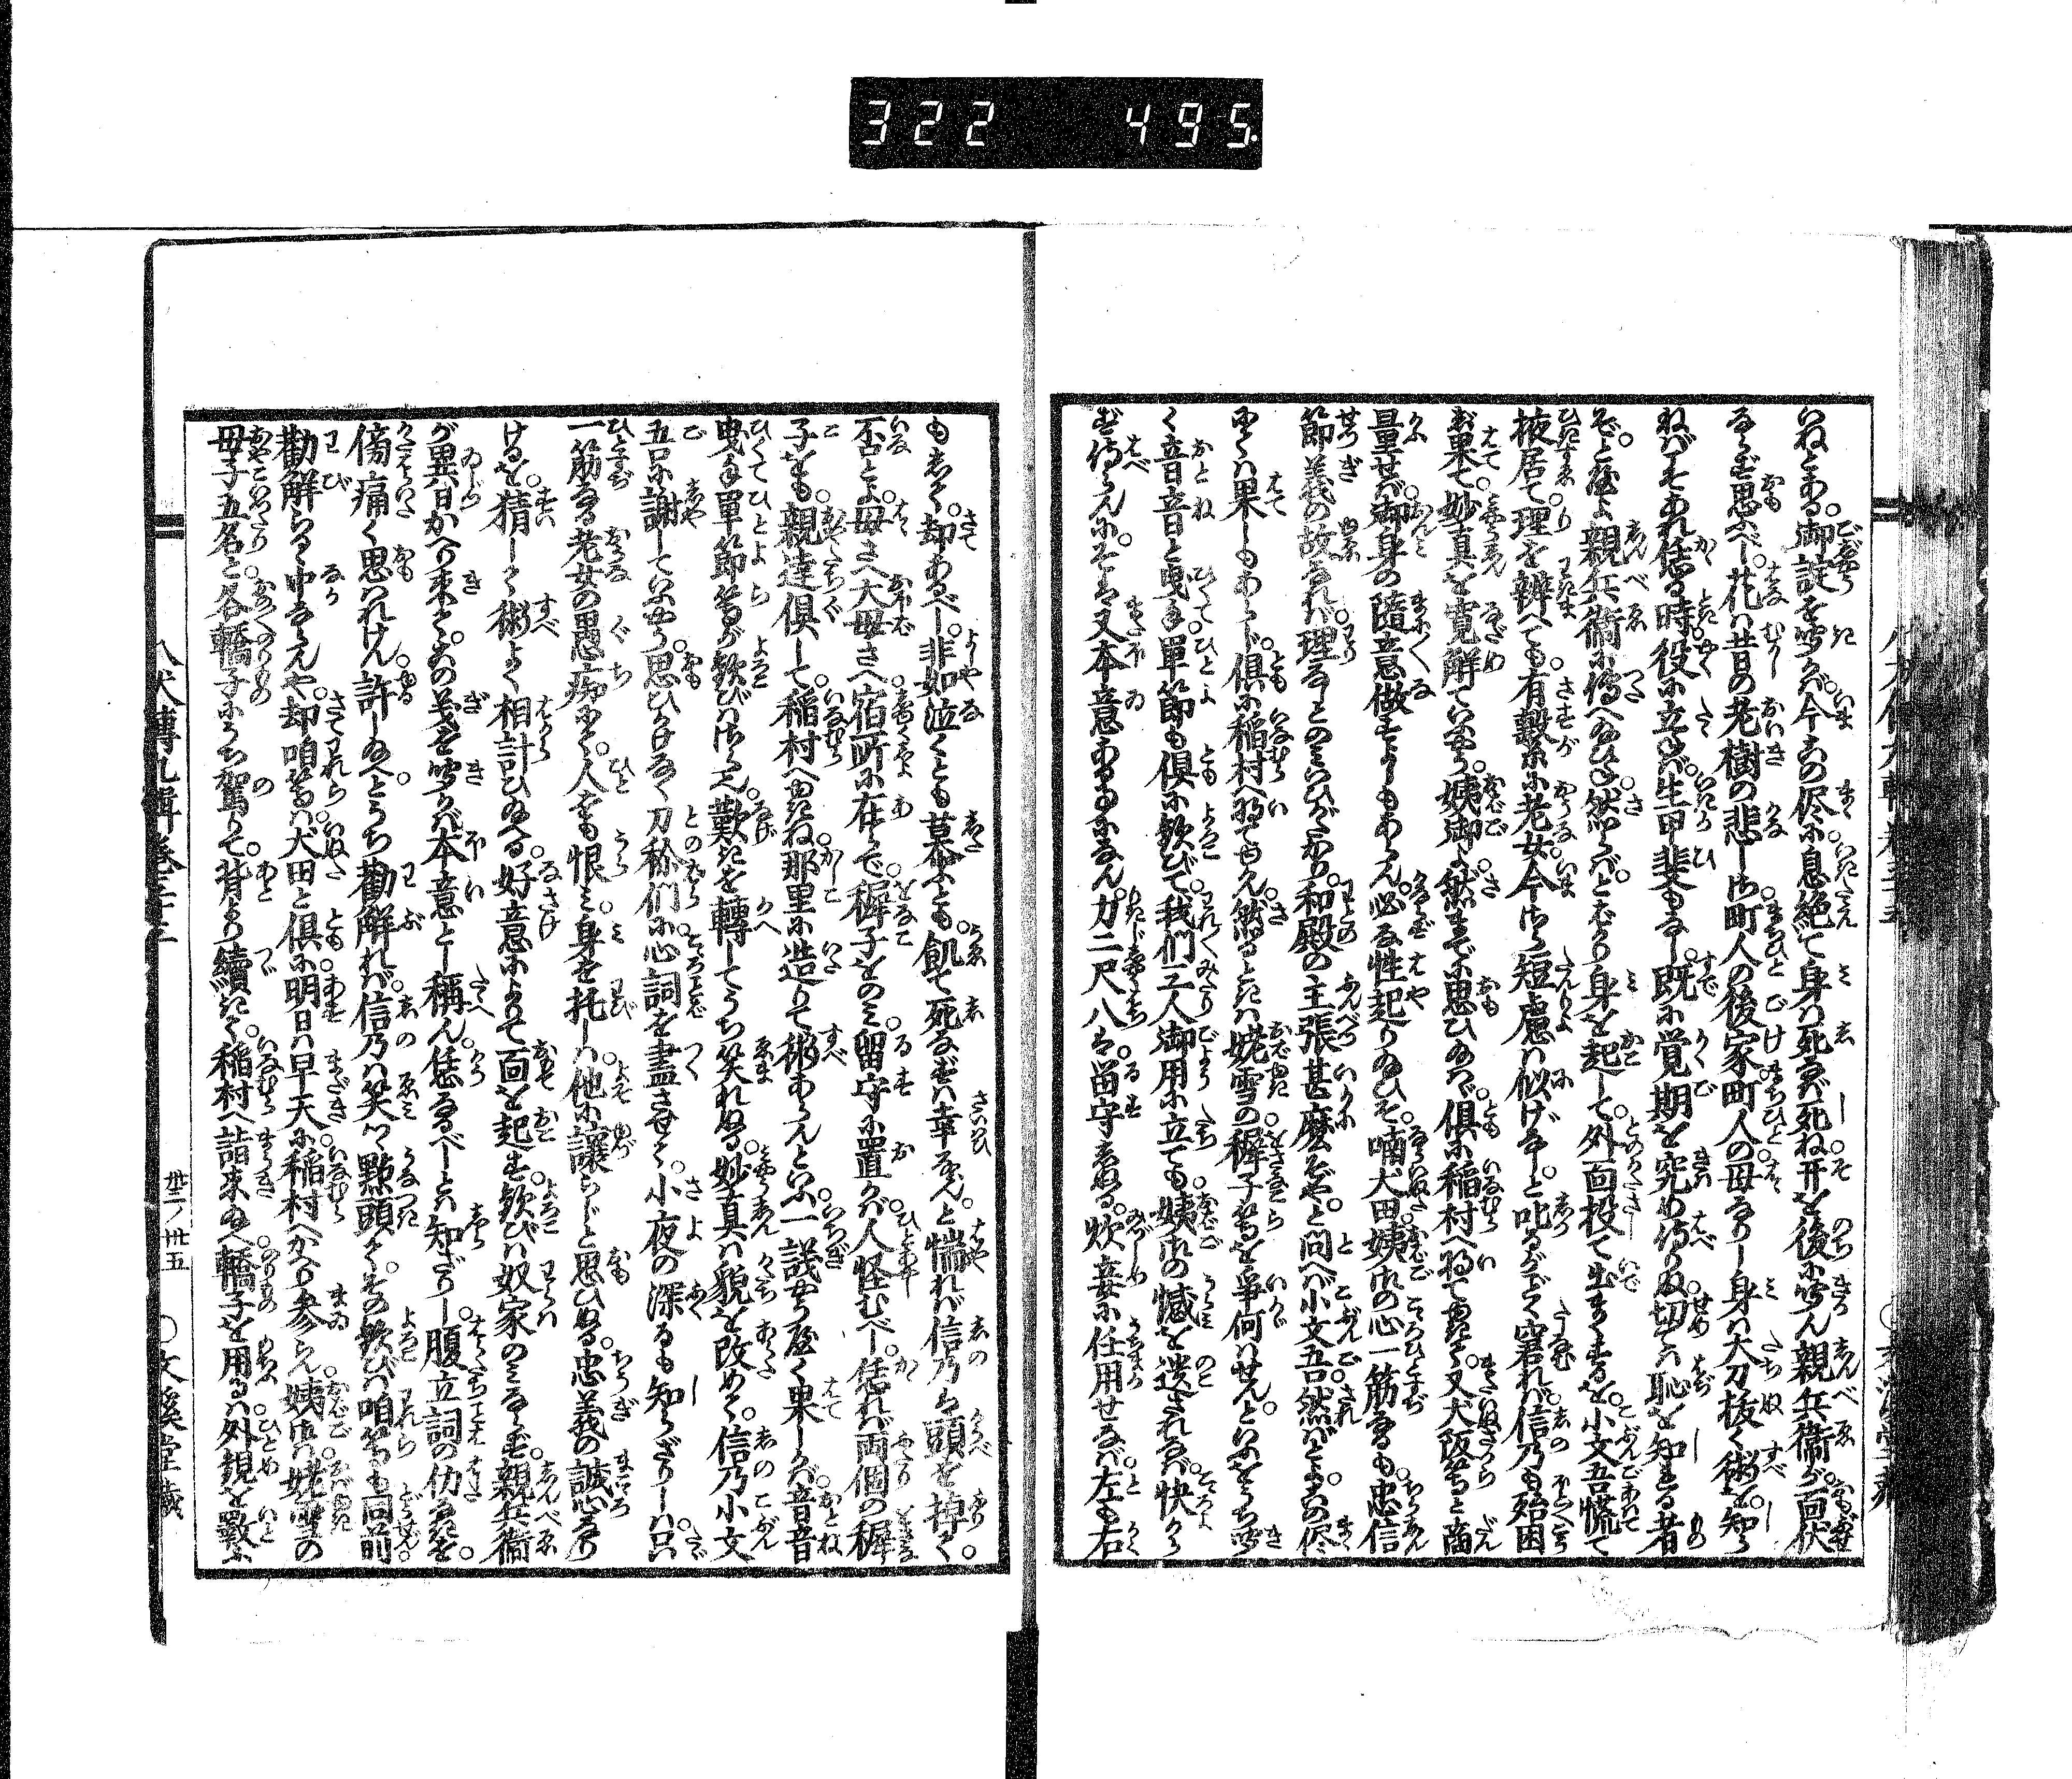 322 495
いねとある。御諚を聞くが。今この侭に。息絶て身は死なば死ね。开を後に聞ん親兵衛が。面伏
ならず思ふべし。花は昔の老樹の悲しさは。町人の後家町人の。母なりし身は大刀抜く術を。知ら
ねばぞあれ。恁る時役に立ずば。生甲斐もなし。既に覚期を究め侍りぬ。切ては恥を知る者
ぞと。傳よ親兵衛に。傳へ給ひね。然らばとばかり身を起して。外面投て出まくするを。小文吾慌て
掖居て。理を辨へても有繋に老女。今さら短慮は似げなし。と叱るがごとく窘れば。信乃も殆困
じ果て。妙真を寛解ていふやう。姨御よ。然までに思ひ給はゞ。倶に稲村へ將てゆきて。又犬阪等と商
量せば。御身の隨意做すよしもあらん。必な性起り給ひそ。喃犬田。姨御の心一筋なるも。忠信
節義の故なれば。理なしとのみいひがたかり。和殿の主張甚麼ぞや。と問へば小文吾。然ばとよ。この侭
にては果しもあらじ。倶に稲村へ將てゆかん。然るときは姥雪の。穉子等を争何はせん。といふをうち聞
く音音と曳手單節も倶に歓びて。我們三人御用に立ても。姨御の憾を遺されなば。快から
ず侍らんに。そは又本意ある事になん。力二尺八は。留守すなる。炊妾に任用せなば。左も右
もしてん。却あるべし。非如泣くとも慕ふとも。飢て死なずは幸ならん。と惴れば信乃は頭を掉て。
否とよ。母さへ大母さへ。宿所に在らで。穉子をのみ留守に置かば。人怪むべし。恁れば両個の穉
子をも。親達倶して。稲村へゆきね。那里に造りて術あらん。といふ一議やうやく果しかば。音音
曳手單節等が歓びはさら也。歎きを轉してうち笑れぬる。妙真は貌を改めて。信乃小文
吾に謝していふやう。思ひがけなく刀祢們に。心詞を盡させて。小夜の深るも知らざりしは。只
一筋なる老女の愚痴にて。人をも恨み。身を托しは。他に譲らじと思ひぬる。忠義の誠心なり
けるを。猜して術よく相計ひ給へる。好意によりて面を起す。歓びは奴家のみならず。親兵衛
が異日かへり来て。この義を聞かば本意とし稱ん。恁るべしとは知ざりし。腹立詞の仂なきを。
傍痛く思はれけん。許し給へ。とうち勸解れば。信乃は笑つゝ點頭て。その歓びは咱等も同前。
勸解らるゝ事ならんや。却咱等は。犬田と倶に。明日は早天に稲村へかへり参らん。姨御は姥雪の
母子五名と。各轎子にうち駕りて。背より續きて。稲村へ詣来給へ。轎子を用るは外覩を厭ふ
八犬傳九輯巻三十三
丗二ノ丗五
○文溪堂藏